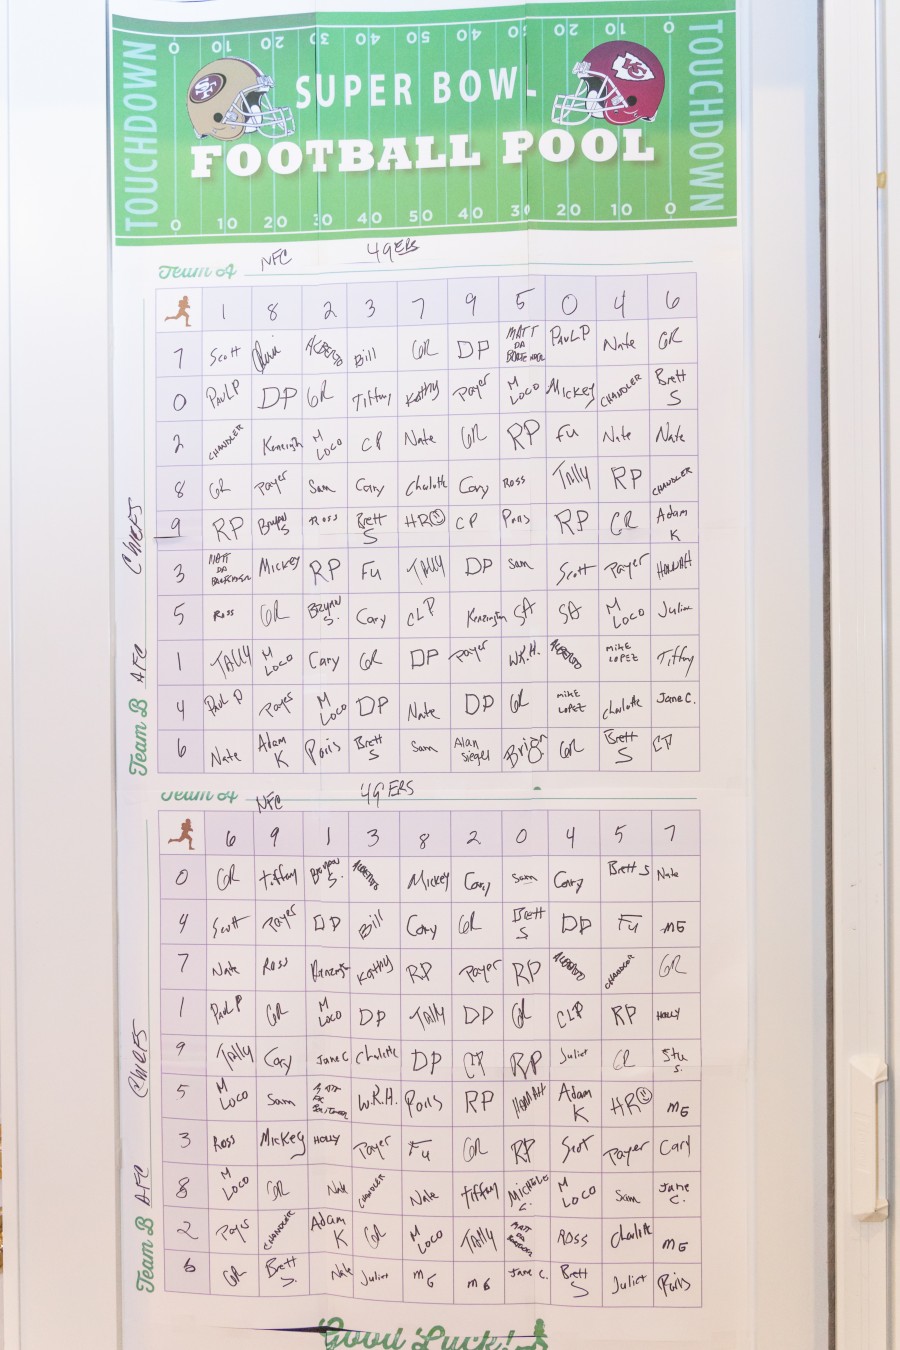 TOUCHDOWN
0 10 20 30 40 50 40 30 20 10 0
TOUCHDOWN
SF
KC
SUPER BOWL
FOOTBALL POOL
0 10 20 30 40 50 40 30 20 10 0
Team A NFC 49ERS
Team B AFC CHIEFS
1 8 2 3 7 9 5 0 4 6
7 Scott Bill GR DP MATT DA PAUL P Nate GR
0 PAUL P DP GR Tiffany Kathy Payer M LOCO Mickey CHANDLER Brett S
2 CHANDLER Kenzington M LOCO CP Nate GR RP FU Nate Nate
8 GR Payer Sam Cary Charlotte Cary Ross TALLY RP CHANDLER
9 RP Bryan S Ross Brett S HR CP Paris RP GR Adam K
3 MATT DA Mickey RP FU TALLY DP Sam Scott Payer HANNAH
5 Ross GR Bryan S. Cary CLP Kenzington SA SA M LOCO Julier
1 TALLY M LOCO Cary GR DP Payer W.R.H. MIKE LOPEZ Tiffany
4 PAUL P Payer M LOCO DP Nate DP GR MIKE LOPEZ Charlotte Jane C.
6 Nate Adam K Paris Brett S Sam Alan Siegel GR Brett S CP
Team A NFC 49ERS
Team B AFC CHIEFS
6 9 1 3 8 2 0 4 5 7
0 GR Tiffany Bryan S. Mickey Cary Sam Cary Brett S Nate
4 Scott Payer DP Bill Cary GR Brett S DP FU MG
7 Nate Ross Kenzington Kathy RP Payer RP CHANDLER GR
1 PAUL P GR M LOCO DP TALLY DP GR CLP RP HOLLY
9 TALLY Cary Jane C Charlotte DP CP RP Julier GR Stu S.
5 M LOCO Sam MATT W.R.H. Paris RP HANNAH Adam K HR MG
3 Ross Mickey HOLLY Payer FU GR RP Scott Payer Cary
8 M LOCO GR Nate CHANDLER Nate Tiffany M LOCO Sam Jane C.
2 Payer CHANDLER Adam K GR M LOCO TALLY MATT DA ROSS Charlotte MG
6 GR Brett S. Nate Julier MG MG Jane C. Brett S Julier Paris
Good Luck!